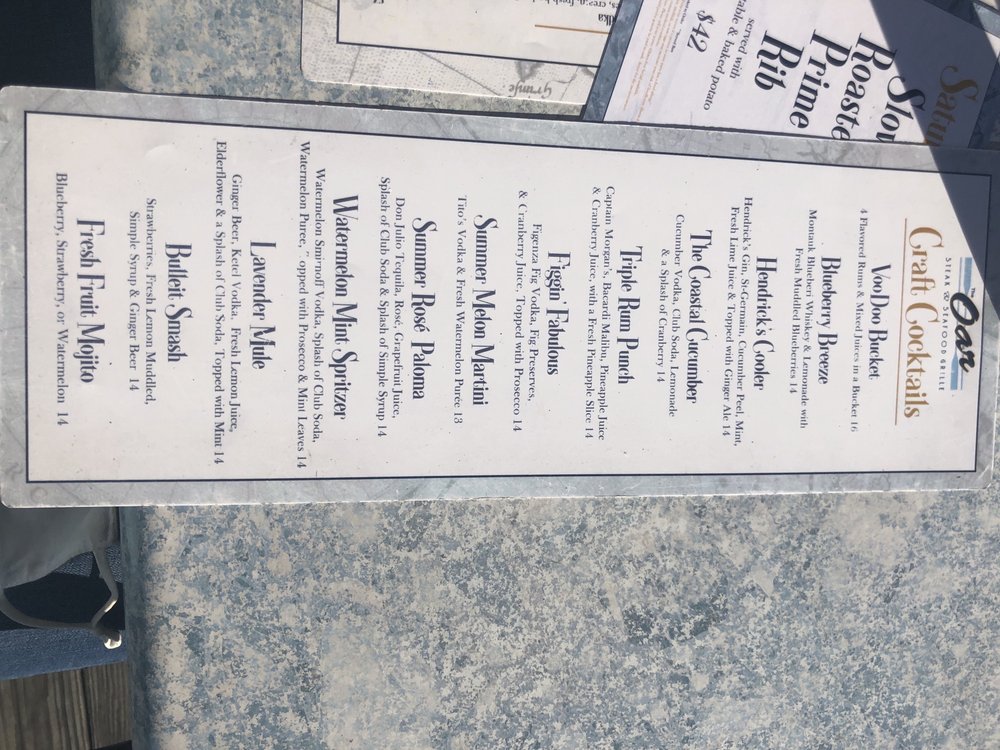 The Oar
STEAK & SEAFOOD GRILLE
Craft Cocktails
VooDoo Bucket
4 Flavored Rums & Mixed Juices in a Bucket 16
Blueberry Breeze
Montauk Blueberi Whiskey & Lemonade with
Fresh Muddled Blueberries 14
Hendrick's Cooler
Hendrick's Gin, St-Germain, Cucumber Peel, Mint,
Fresh Lime Juice & Topped with Ginger Ale 14
The Coastal Cucumber
Cucumber Vodka, Club Soda, Lemonade
& a Splash of Cranberry 14
Triple Rum Punch
Captain Morgan's, Bacardi Mailon, Pineapple Juice
& Cranberry Juice, with a Fresh Pineapple Slice 14
Figgin' Fabulous
Figenza Fig Vodka, Fig Preserves,
& Cranberry Juice, Topped with Prosecco 14
Summer Melon Martini
Tito's Vodka & Fresh Watermelon Purée 13
Summer Rosé Paloma
Don Julio Tequila, Rosé, Grapefruit Juice,
Splash of Club Soda & Splash of Simple Syrup 14
Watermelon Mint Spritzer
Watermelon Smirnoff Vodka, Splash of Club Soda,
Watermelon Puree, Topped with Prosecco & Mint Leaves 14
Lavender Mule
Ginger Beer, Ketel Vodka, Fresh Lemon Juice,
Elderflower & a Splash of Club Soda, Topped with Mint 14
Bulleit Smash
Strawberries, Fresh Lemon Muddled,
Simple Syrup & Ginger Beer 14
Fresh Fruit Mojito
Blueberry, Strawberry, or Watermelon 14
Satu
Slow
Roaste
Prime
Rib
served with
table & baked potato
$42